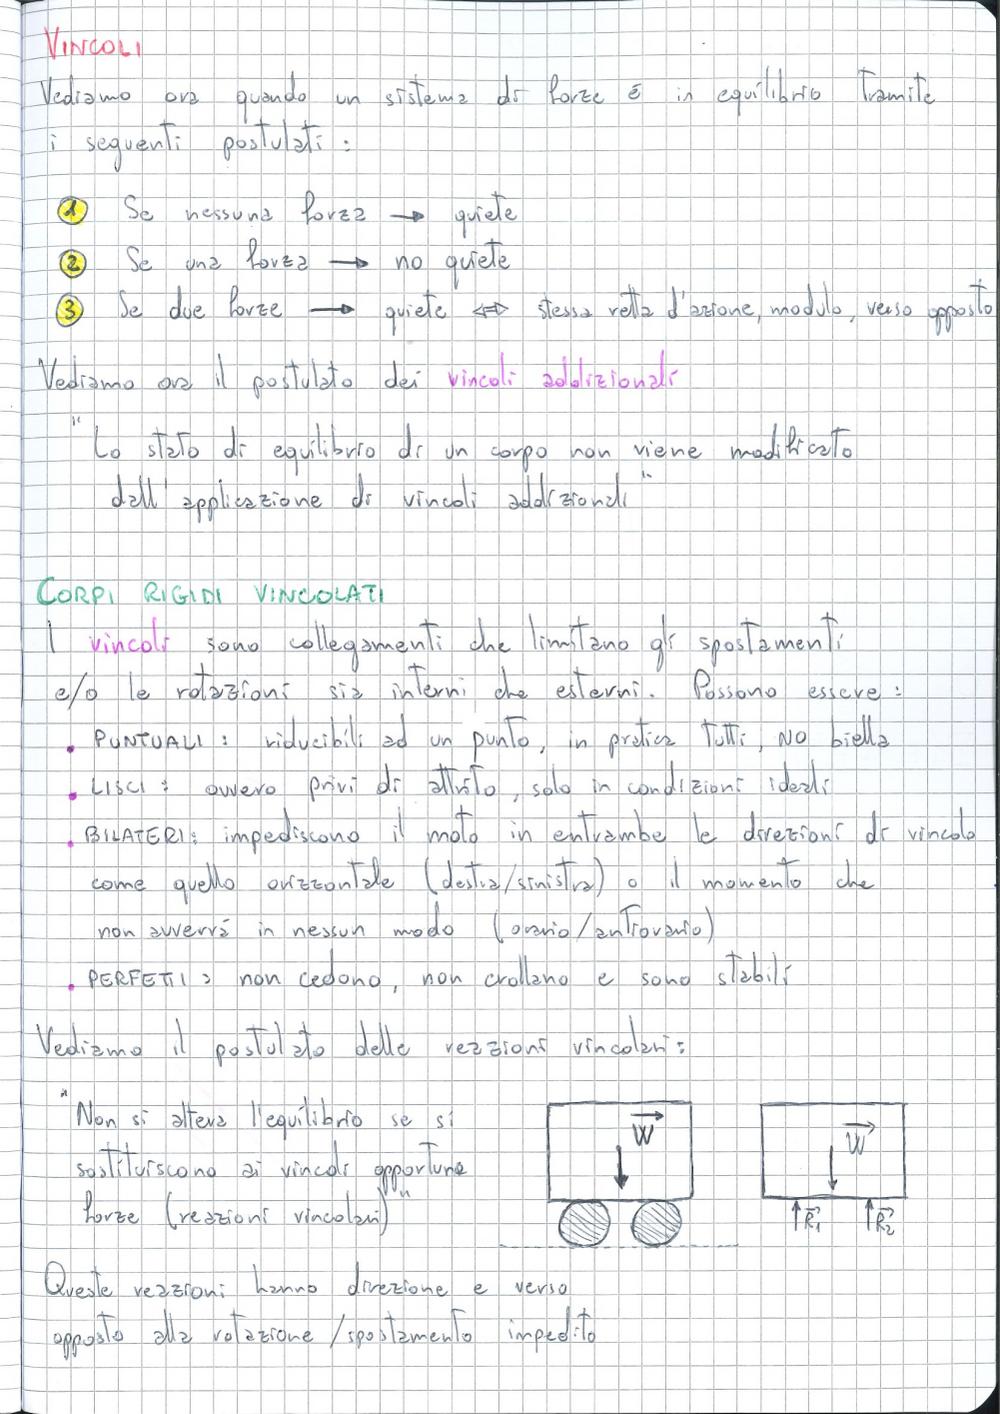 VINCOLI
Vediamo ora quando un sistema di forze é in equilibrio tramite
i seguenti postulati :
1 Se nessuna forza → quiete
2 Se una forza → no quiete
3 Se due forze → quiete ⇔ stessa retta d'azione, modulo, verso opposto
Vediamo ora il postulato dei vincoli addizionali
"Lo stato di equilibrio di un corpo non viene modificato
dall'applicazione di vincoli addizionali"
CORPI RIGIDI VINCOLATI
I vincoli sono collegamenti che limitano gli spostamenti
e/o le rotazioni sia interni che esterni. Possono essere :
• PUNTUALI : riducibili ad un punto, in pratica tutti, NO biella
• LISCI : ovvero privi di attrito, solo in condizioni ideali
• BILATERI: impediscono il moto in entrambe le direzioni di vincolo
come quello orizzontale (destra/sinistra) o il momento che
non avverrá in nessun modo (orario/antiorario)
• PERFETTI : non cedono, non crollano e sono stabili
Vediamo il postulato delle reazioni vincolari :
"Non si altera l'equilibrio se si
sostituiscono ai vincoli opportune
forze (reazioni vincolari)"
W W
R1 R2
Queste reazioni hanno direzione e verso
opposto alla rotazione /spostamento impedito